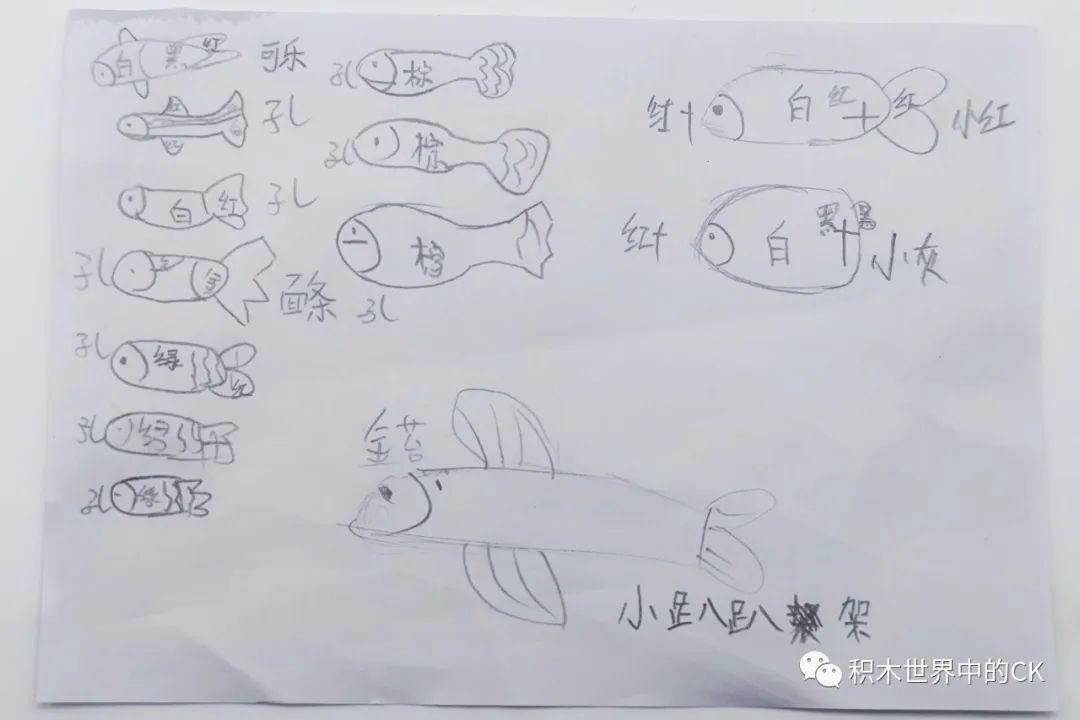 白 黑 红 可乐
红
红 孔
白 红 孔
孔 金 金 面条
孔 绿 红
孔 绿
孔 绿
孔 棕
孔 棕
棕
孔
红十 白 红 十 红 小红
红十 白 黑 十 黑 小灰
金苔
小趴趴 架
积木世界中的CK